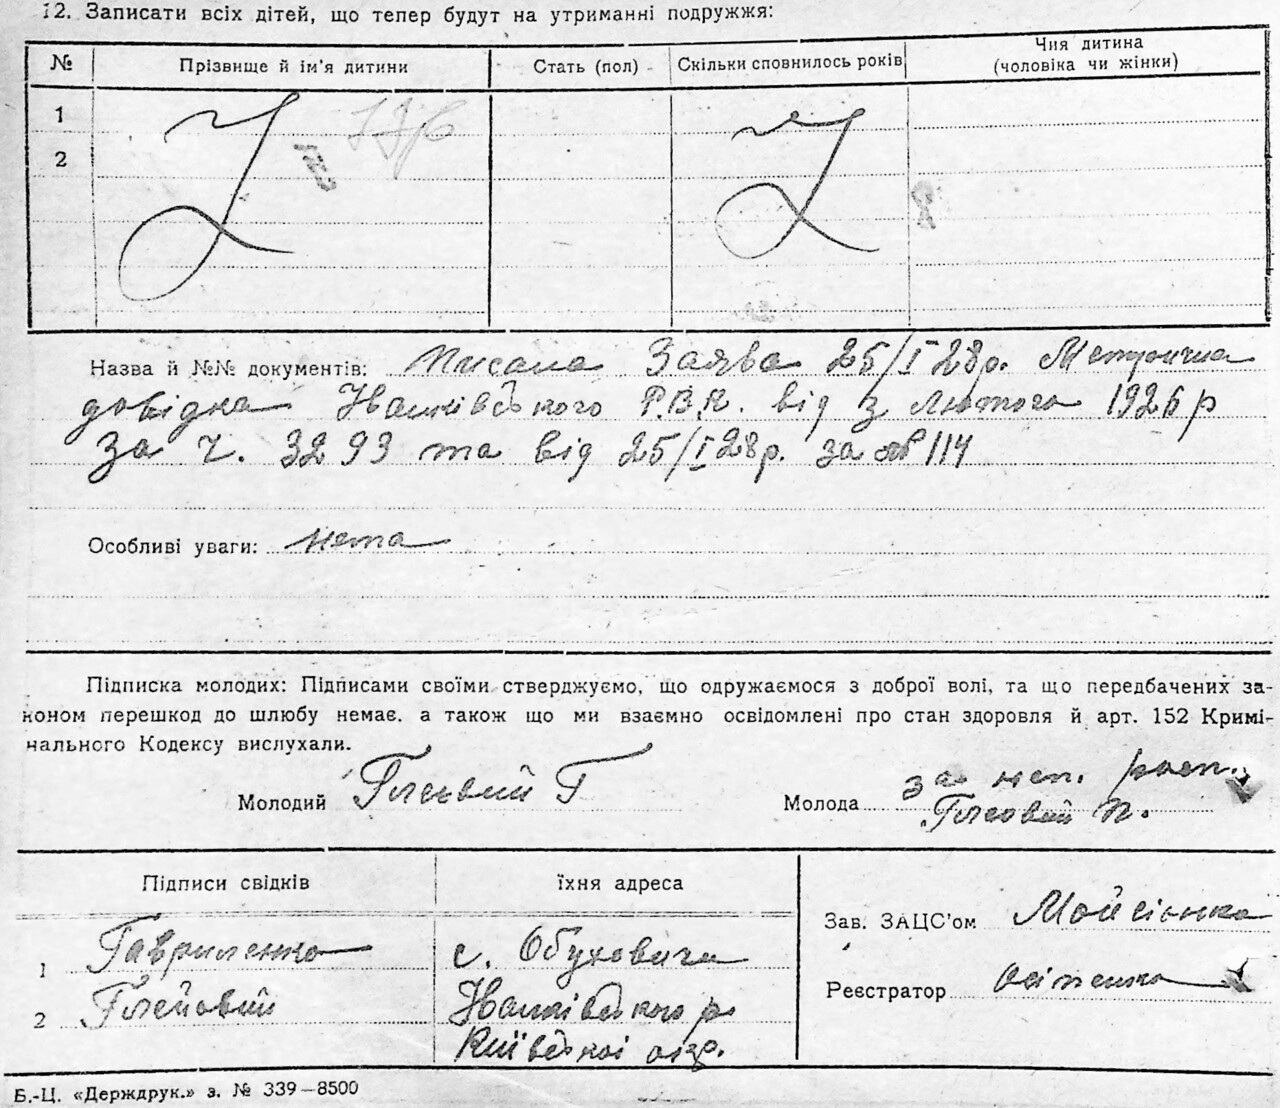 12. Записати всіх дітей, що тепер будут на утриманні подружжя:
№ Прізвище й ім'я дитини Стать (пол) Скільки сповнилось років Чия дитина
(чоловіка чи жінки)
1
2
Назва й №№ документів: Писала Заява 25/I 28р. Метрична
довідка Іванківського Р.В.К. від 3 лютого 1926 р
за Ч. 3293 та від 25/I 28р. за № 114
Особливі уваги: нета
Підписка молодих: Підписами своїми стверджуємо, що одружаємося з доброї волі, та що передбачених за-
коном перешкод до шлюбу немає. а також що ми взаємно освідомлені про стан здоровля й арт. 152 Кримі-
нального Кодексу вислухали.
Молодий Г Молода за неп. росп.
П.
Підписи свідків їхня адреса
Зав. ЗАЦС'ом Мойсієнко
1 Гавриленко с. Обуховичи
Реєстратор Осіпенко
2 Іванківського р
Київської окр.
Б.-Ц. «Держдрук.» з. № 339—8500